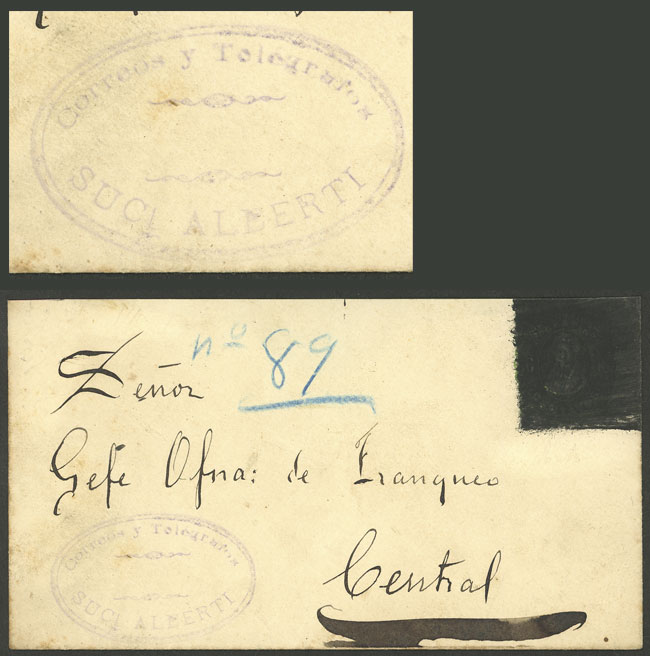 Correos y Telegrafos
SUC! ALBERTI
nº 89
Señor
Gefe Ofna: de Franqueo
Central
Correos y Telegrafos
SUC! ALBERTI